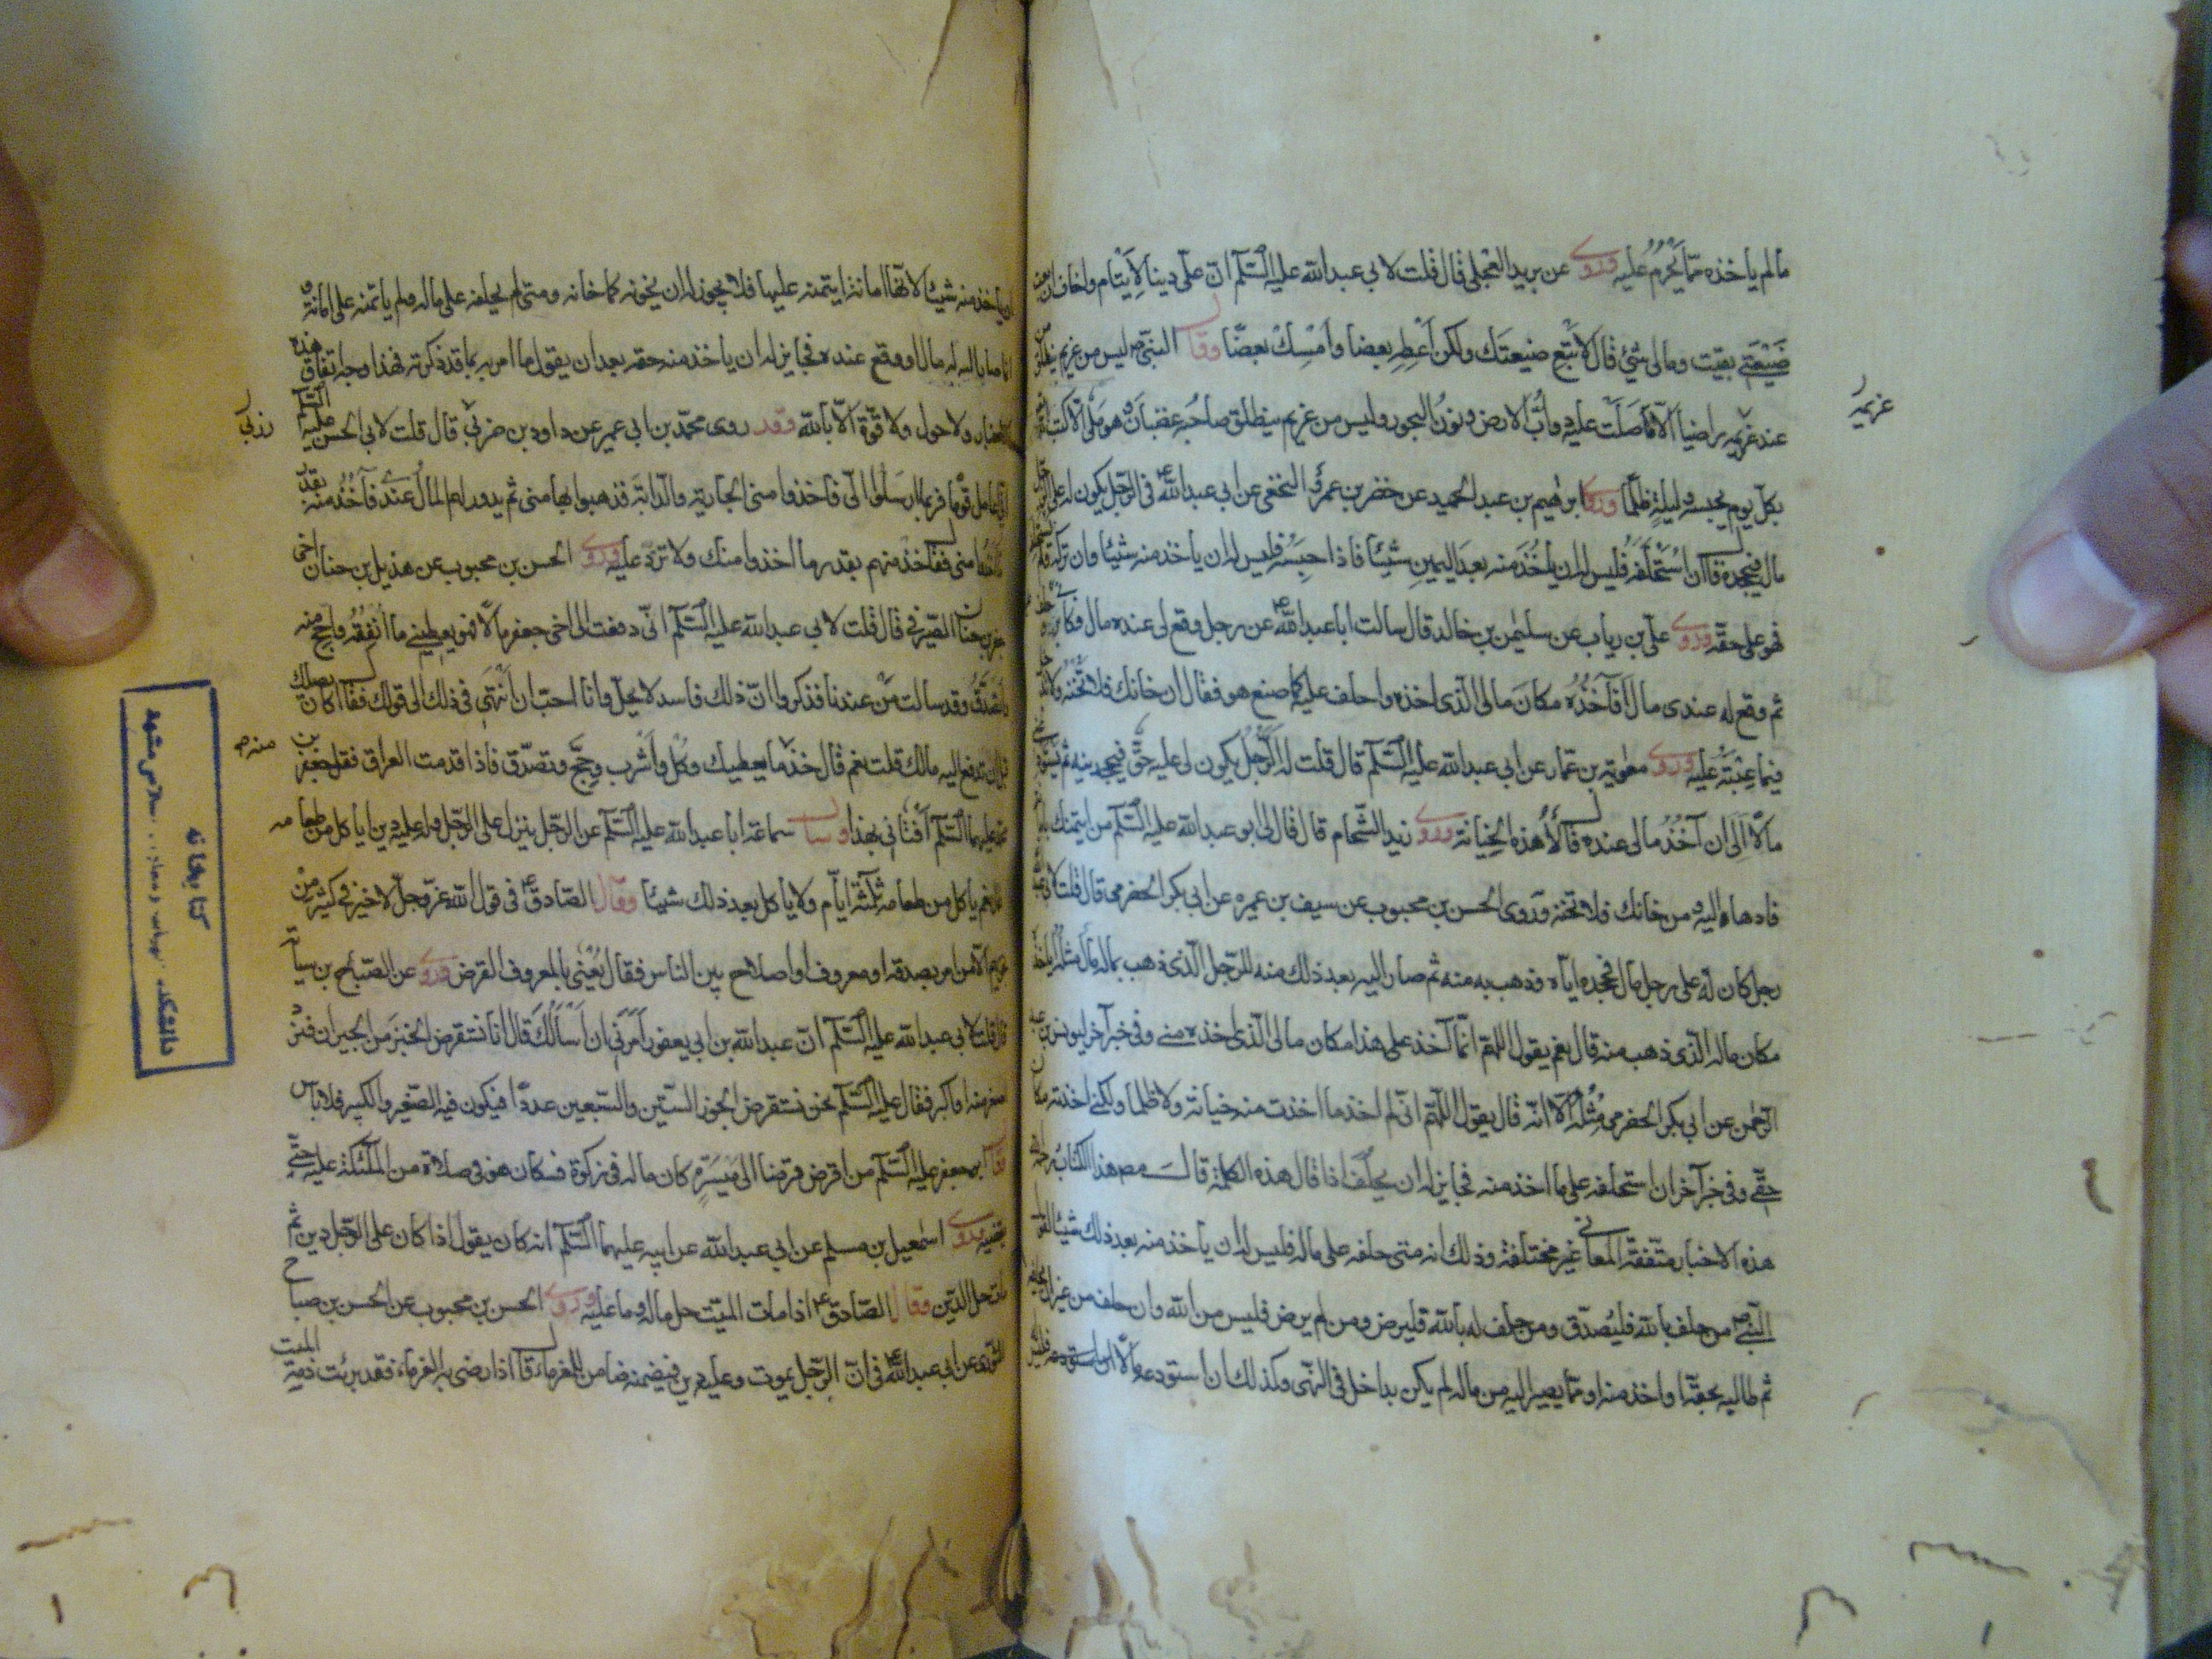 مالم ياخذه مما يحرم عليه وروى عن بريد العجلى قال قلت لابي عبد الله عليه السّلم انّ علىّ دينا لايتام واخاف ان بعت
ضيعتى بقيت ومالى شئ قال لا تبع ضيعتك ولكن اعط بعضا وامسك بعضًا وقال النبىّ ص ليس من غريم ينطلق من
عند غريمه راضيا الّا صلّت عليه دوابّ الارض ونون البحور وليس من غريم ينطلق صاحبه غضبان وهو ملىّ الّا كتب الله
بكلّ يوم يحبسه وليلة ظلمًا وروى ابرهيم بن عبد الحميد عن خضر بن عمرو النخعى عن ابى عبد الله ع فى الرّجل يكون له على الرجل
مال فيجحده قال ان استحلفه فليس له ان ياخذ منه بعد اليمين شيئا فاذا احبسه فليس له ان ياخذ منه شيئا وان تركه ولم
فهو على حقّه وروى علىّ بن رياب عن سليمن بن خالد قال سالت ابا عبد الله ع عن رجل وقع لى عنده مال فكابرنى
ثم وقع له عندى مال فآخذه مكان مالى الّذى اخذه واحلف عليه كما صنع هو فقال ان خانك فلا تخنه ولا تدخل
فيما عبته عليه وروى معوية بن عمار عن ابى عبد الله عليه السّلم قال قلت له الرّجل يكون لى عليه حقّ فيجحدنيه ثم يستودعنى
مالًا الى ان آخذ مالى عنده قال لا هذه الخيانة وروى زيد الشّحام قال قال لى ابو عبد الله عليه السّلم من ايتمنك بامانة
فادها اليه ومن خانك فلا تخنه وروى الحسن بن محبوب عن سيف بن عميره عن ابى بكر الحضرمى قال قلت لابى عبد الله
رجل كان له على رجل مال فجحده اياه وذهب به منه ثم صار اليه بعد ذلك منه للرّجل الّذى ذهب بماله مال مثله أياخذه
مكان ماله الّذى ذهب منه قال نعم يقول اللهم انّما آخذ على هذا مكان مالى الّذى اخذه منى وفى خبر آخر ليونس بن عبد
الرّحمن عن ابى بكر الحضرمى مثله الّا انّه قال يقول اللّهمّ انّى لم اخذ ما اخذت منه خيانة ولا ظلما ولكنى اخذته مكان
حقّى وفى خبر آخر ان استحلفه على ما اخذ منه فجايز له ان يحلف اذا قال هذه الكلمة قال مصنف هذا الكتاب رحمه الله
هذه الاخبار متّفقة المعانى غير مختلفة وذلك انه متى حلفه على ماله فليس له ان ياخذ منه بعد ذلك شيئا لقول
النّبى ص من حلف بالله فليصدّق ومن حلف له بالله فليرض ومن لم يرض فليس من الله وان حلف من غير ان يحلفه
ثم طالبه بحقّه او اخذ منه او ممّا يصير اليه من ماله لم يكن بداخل فى النّهى وكذلك ان استودعه مالًا
غريمه
ان ياخذ منه شيئا لانّها امانة ايتمنه عليها فلا يجوز له ان يخونه كما خانه ومتى لم يحلفه على ماله ولم ياتمنه على امانة
انّما صار اليه له مال او وقع عنده فجايز له ان ياخذ منه حقه بعد ان يقول ما امر به بما قد ذكرته فهذا وجه اتفاق هذه
الاخبار ولا حول ولا قوّة الّا بالله وقد روى محمّد بن ابى عمير عن داود بن زربى قال قلت لابى الحسن عليه السّلم
انّى اعامل قومًا فربما ارسلوا الىّ فاخذوا منى الجارية والدّابة فذهبوا بها منى ثم يدور لهم المال عندى فآخذ منه بقدر
ما اخذوا منى فقال خذ منهم بقدر ما اخذوا منك ولا تزد عليه وروى الحسن بن محبوب عن هذيل بن حنان اخى
جعفر بن حنان الصّيرفى قال قلت لابى عبد الله عليه السّلم انّى دفعت الى اخى جعفر مالًا فهو يعطينى ما انفقه واحجّ منه
واتصدّق وقد سالت من عندنا فذكروا انّ ذلك فاسد لا يحلّ وانا احبّ ان انتهى فى ذلك الى قولك فقال اكان يصلك
قبل ان تدفع اليه مالك قلت نعم قال خذ ما يعطيك وكل واشرب وحجّ وتصدّق فاذا قدمت العراق فقل جعفر بن
محمد عليهما السّلم افتانى بهذا وسال سماعة ابا عبد الله عليه السّلم عن الرّجل ينزل على الرّجل وله عليه دين اياكل من طعامه
قال نعم ياكل من طعامه ثلثة ايّام ولا ياكل بعد ذلك شيئا وقال الصّادق ع فى قول الله عزّ وجلّ لا خير فى كثير من
نجويهم الّا من امر بصدقة او معروف او اصلاح بين الناس فقال يعنى بالمعروف القرض وروى عن الصّباح بن سيابة
قال قلت لابى عبد الله عليه السّلم انّ عبد الله بن ابى يعفور امرنى ان اسالك قال انا نستقرض الخبز من الجيران فنرد
اصغر منه او اكبر فقال عليه السّلم نحن نستقرض الجوز السّتّين والسّبعين عددًا فيكون فيه الصّغير والكبير فلا باس
وقال ابو جعفر عليه السّلم من اقرض قرضا الى ميسرة كان ماله فى زكوة وكان هو فى صلاة من الملئكة عليه حتّى
يقضيه وروى اسمعيل بن مسلم عن ابى عبد الله عن ابيه عليهما السّلم انه كان يقول اذا كان على الرّجل دين ثم
مات حل الدّين وقال الصّادق ع اذا مات الميّت حل ماله وما عليه وروى الحسن بن محبوب عن الحسن بن صالح
الثورى عن ابى عبد الله ع فى انّ الرّجل يموت وعليه دين فيضمنه ضامن للغرماء قال اذا رضى به الغرماء فقد برئت ذمة الميت
زربى
منه
كتابخانه
دانشكده الهيات و معارف اسلامى مشهد